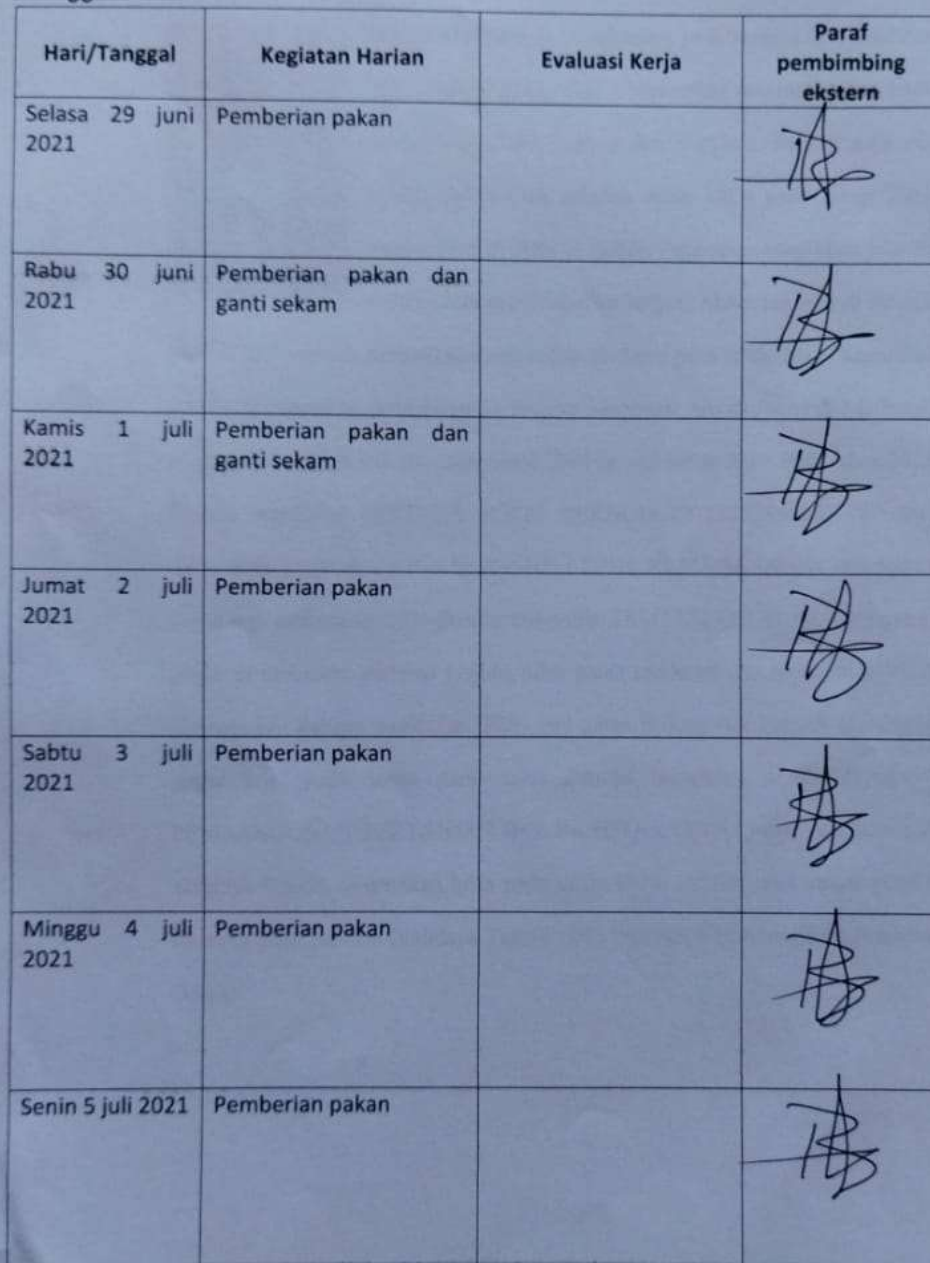 Hari/Tanggal
Kegiatan Harian
Evaluasi Kerja
Paraf
pembimbing
ekstern
Selasa 29 juni
2021
Pemberian pakan
Rabu 30 juni
2021
Pemberian pakan dan
ganti sekam
Kamis 1 juli
2021
Pemberian pakan dan
ganti sekam
Jumat 2 juli
2021
Pemberian pakan
Sabtu 3 juli
2021
Pemberian pakan
Minggu 4 juli
2021
Pemberian pakan
Senin 5 juli 2021
Pemberian pakan